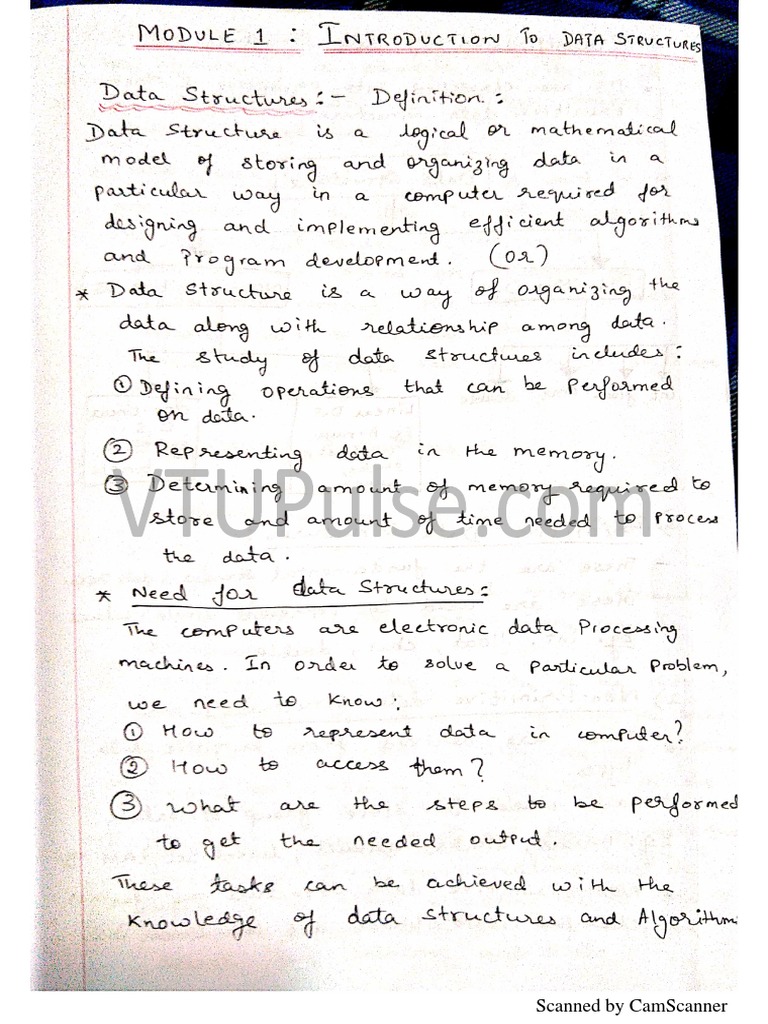 MODULE 1 : INTRODUCTION TO DATA STRUCTURES
Data Structures :- Definition :
Data Structure is a logical or mathematical
model of storing and organizing data in a
particular way in a computer required for
designing and implementing efficient algorithms
and Program development. (OR)
* Data Structure is a way of organizing the
data along with relationship among data.
The study of data structures includes :
① Defining operations that can be performed
on data.
② Representing data in the memory.
③ Determining amount of memory required to
VTUPulse.com
store and amount of time needed to process
the data.
* Need for data Structures :
The computers are electronic data Processing
machines. In order to solve a Particular Problem,
we need to know :
① How to represent data in computer?
② How to access them?
③ What are the steps to be performed
to get the needed output.
These tasks can be achieved with the
knowledge of data structures and Algorithm
Scanned by CamScanner